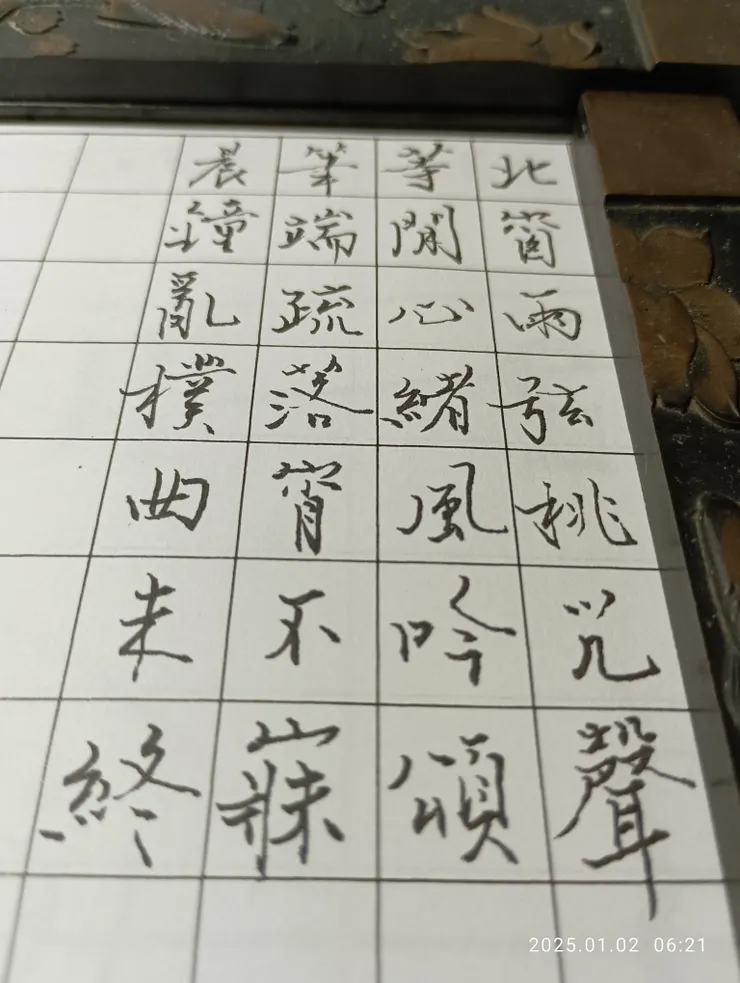 北窗雨弦桃咒聲
等閒心緒風吟頌
筆端疏落宵不寐
晨鐘亂樸曲未終
2025.01.02 06:21